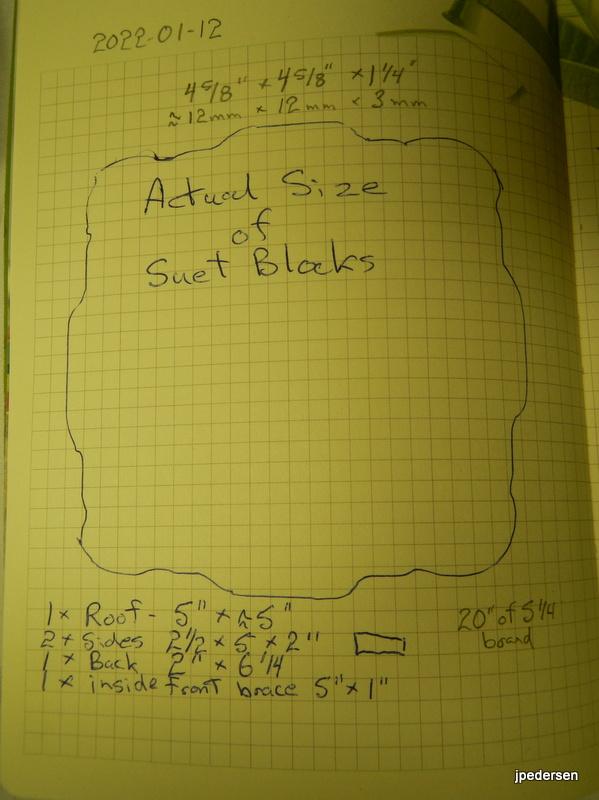 2022-01-12
4 5/8" x 4 5/8" x 1 1/4"
≈ 12mm x 12mm x 3mm
Actual Size
of
Suet Blocks
1x Roof - 5" x ≈5"
2x Sides 2 1/2 x 5 x 2"
1x Back 2" x 6 1/4
1x inside front brace 5" x 1"
20" of 5 1/4
brand
jpedersen